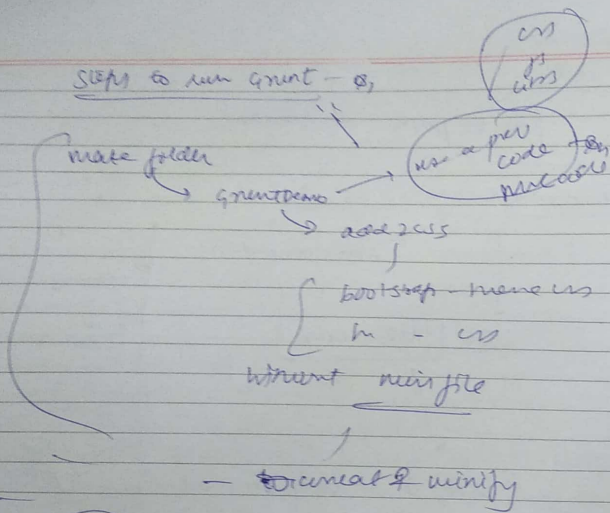 css
js
steps to run Grunt -
make folder
a prev
code
GruntDemo
add 2 css
bootstrap - theme css
- css
without min file
- concat & minify